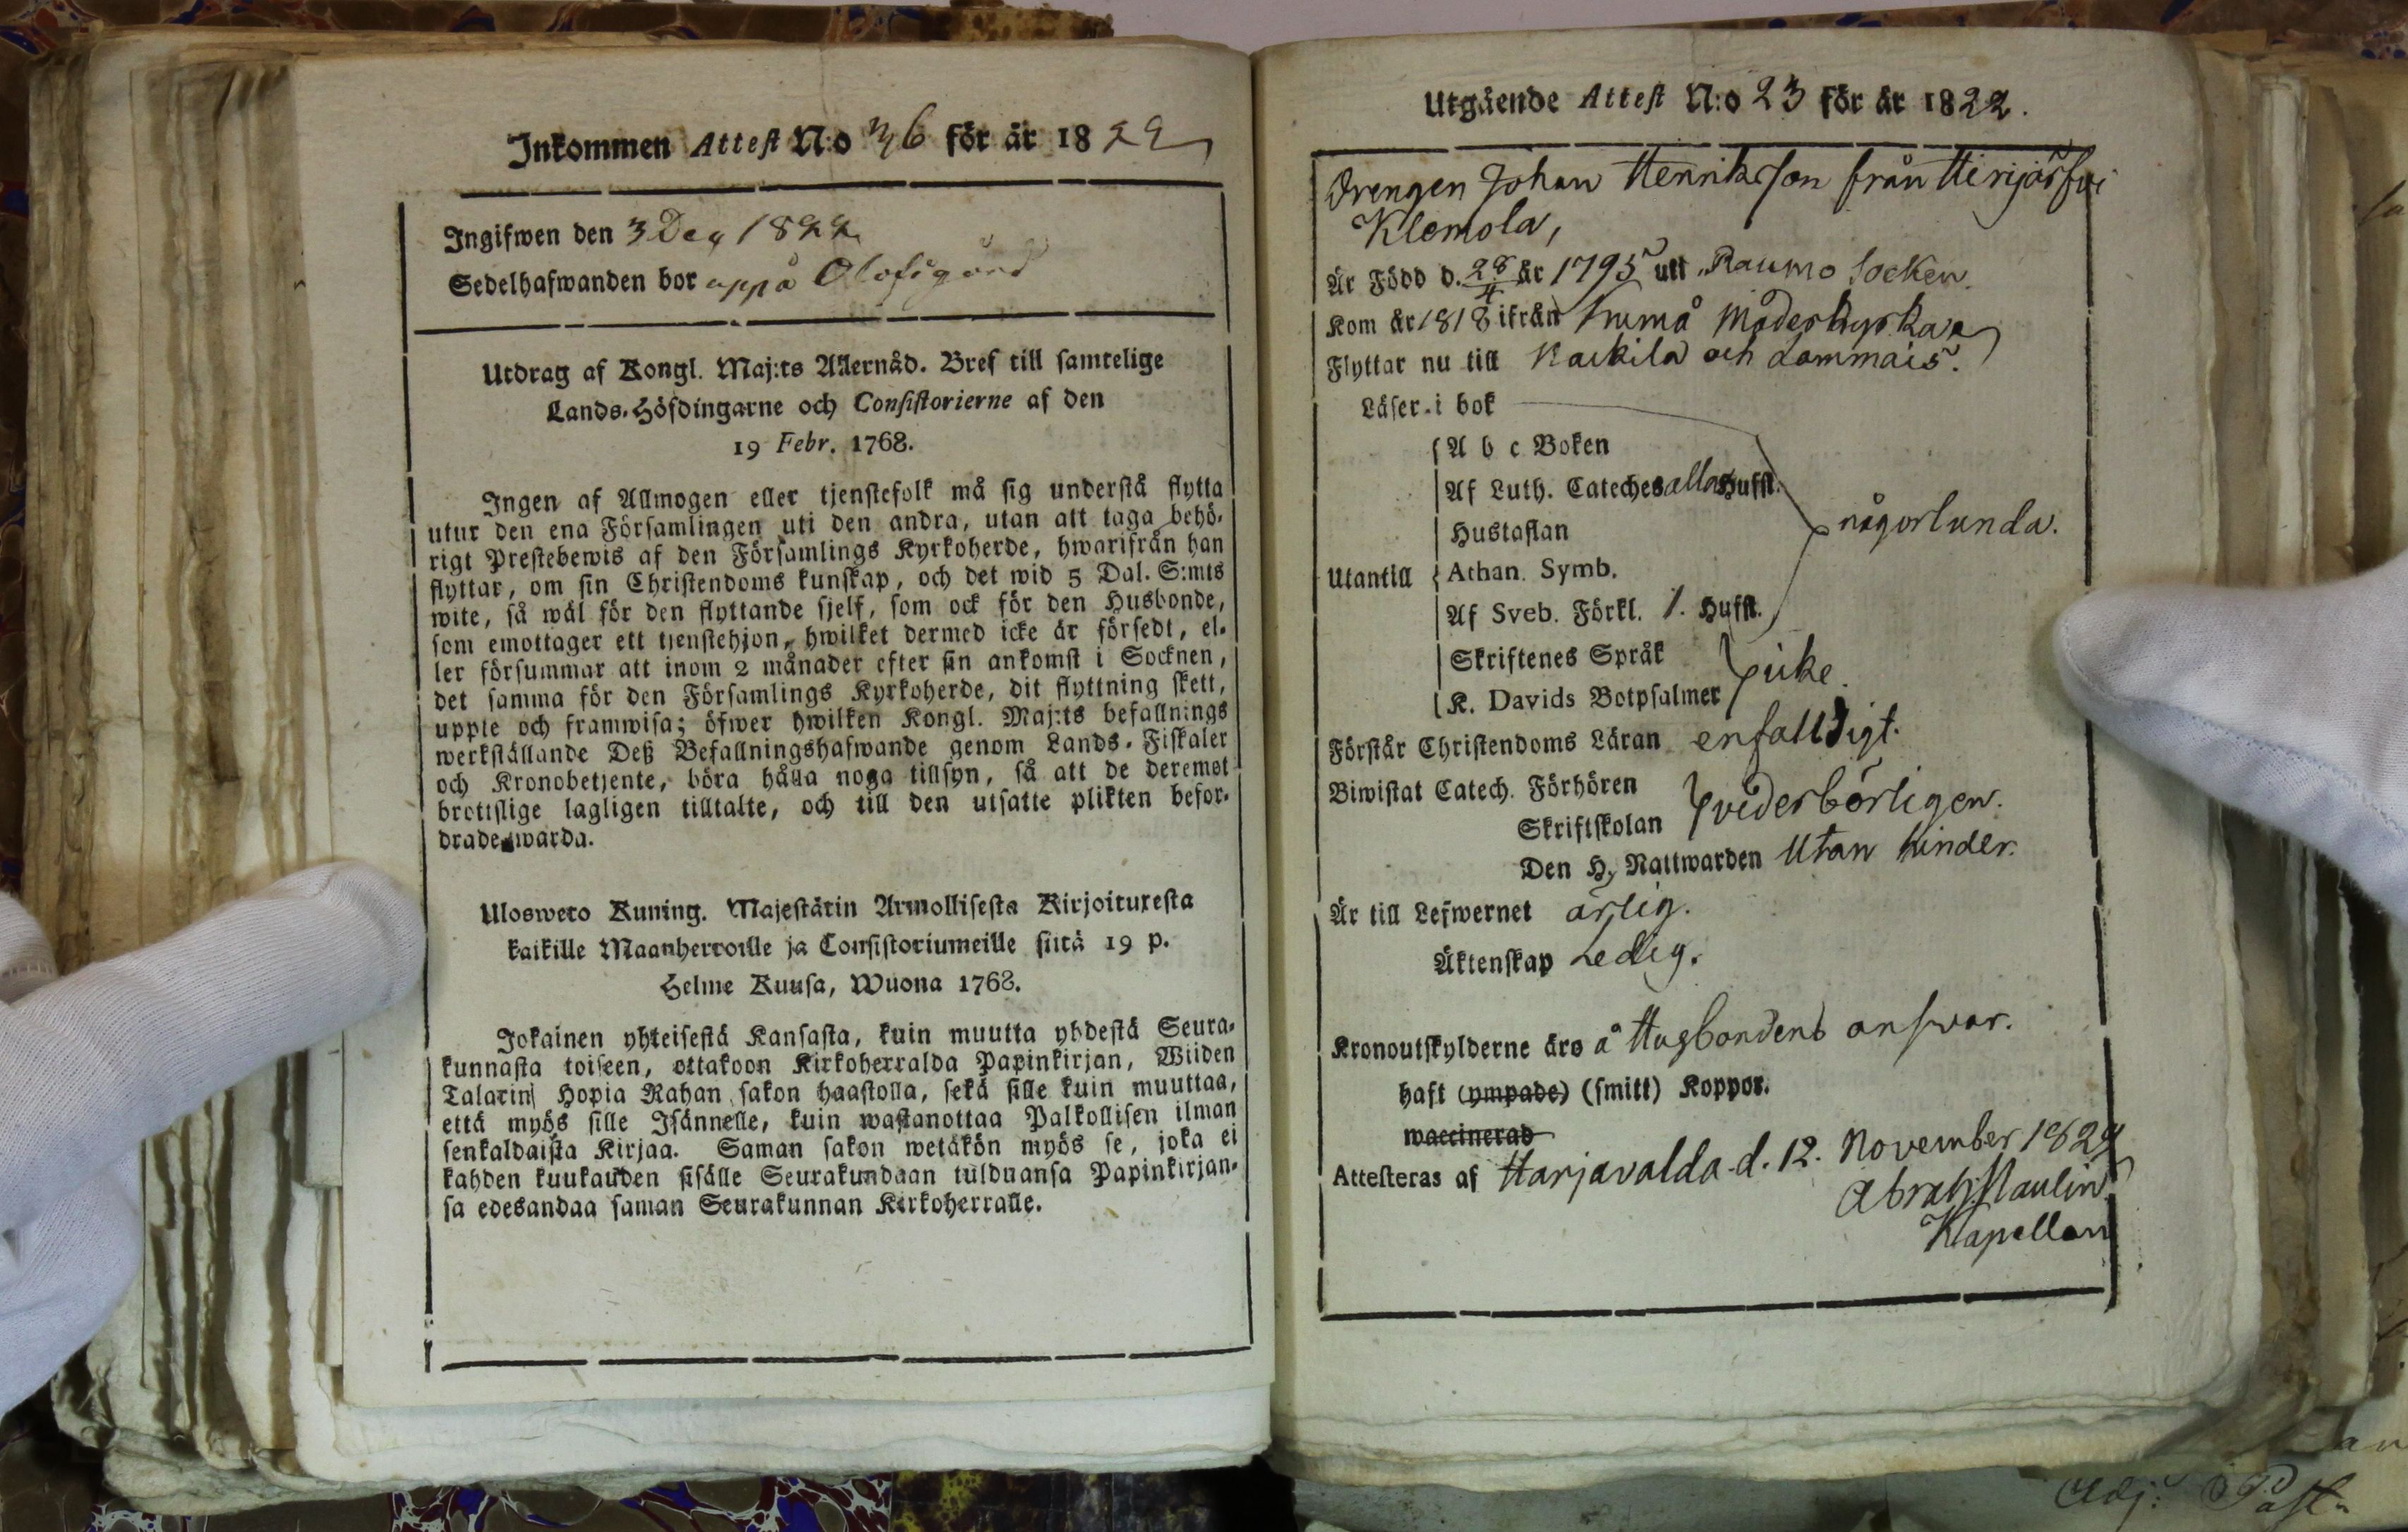 Inkommen Attest N:o 36 för år 1822
Ingifwen den 3 Dec 1822
Sedelhafwanden bor uppå Olofsgård
Utdrag af Kongl. Maj:ts Allernåd. Bref till samtelige
Lands-Höfdingarne och Consistorierne af den
19 Febr. 1768.
Ingen af Allmogen eller tjenstefolk må sig understå flytta
utur den ena Församlingen uti den andra, utan att taga behö-
rigt Prestebewis af den Församlings Kyrkoherde, hwarifrån han
flyttar, om sin Christendoms kunskap, och det wid 5 Dal. S:mts
wite, så wäl för den flyttande sjelf, som ock för den Husbonde,
som emottager ett tjenstehjon, hwilket dermed icke är försedt, el-
ler försummar att inom 2 månader efter sin ankomst i Socknen,
det samma för den Församlings Kyrkoherde, dit flyttning skett,
uppte och framwisa; öfwer hwilken Kongl. Maj:ts befallnings
werkställande Deß Befallningshafwande genom Lands-Fiskaler
och Kronobetjente, böra hålla noga tillsyn, så att de deremot
brottslige lagligen tilltalte, och till den utsatte plikten befor-
drade warda.
Ulosweto Kuning. Majestätin Armollisesta Kirjoituxesta
kaikille Maanherroille ja Consistoriumeille siitä 19 p.
Helme Kuusa, Wuona 1768.
Jokainen yhteisestä Kansasta, kuin muutta yhdestä Seura-
kunnasta toiseen, ottakoon Kirkoherralda Papinkirjan, Wiiden
Talarin Hopia Rahan sakon haastolla, sekä sille kuin muuttaa,
että myös sille Isännelle, kuin wastanottaa Palkollisen ilman
senkaldaista Kirjaa. Saman sakon wetäkön myös se, joka ei
kahden kuukauden sisälle Seurakundaan tulduansa Papinkirjan-
sa edesandaa saman Seurakunnan Kirkoherralle.
Utgående Attest N:o 23 för år 1822.
Drengen Johan Henriksson från Hirijärfvi
Klemola,
Är Född d. 28/4 år 1795 utt Raumo Socken.
Kom år 1818 ifrån Kumå Moderkyrka
Flyttar nu till Kackila och Lammais.
Läser i bok
A b c Boken
Af Luth. Cateches alla Hufst.
Hustaflan
någorlunda.
Utantill Athan. Symb.
Af Sveb. Förkl. 1. Hufst.
Skriftenes Språk
icke.
K. Davids Botpsalmer
Förstår Christendoms Läran enfalldigt.
Biwistat Catech. Förhören
Skriftskolan vederbörligen.
Den H. Nattwarden Utan hinder.
Är till Lefwernet ärlig.
Äktenskap Ledig.
Kronoutskylderne äro å Husbondens answar.
haft (ympade) (smitt) Koppor.
waccinerad
Attesteras af Harjavalda d. 12. November 1822
Abrah. Paulin
Kapellan
Adj: Past.